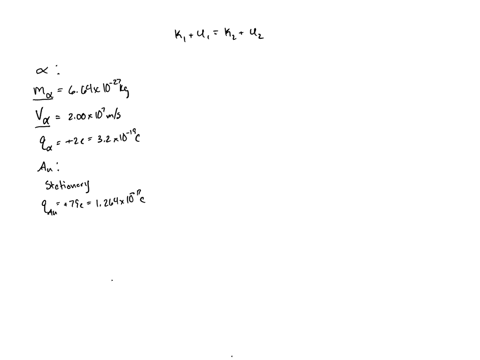 K₁ + U₁ = K₂ + U₂
α:
m_α = 6.64 x 10⁻²⁷ kg
V_α = 2.00 x 10⁷ m/s
q_α = +2e = 3.2 x 10⁻¹⁹ C
Au:
Stationary
q_Au = +79e = 1.264 x 10⁻¹⁷ C